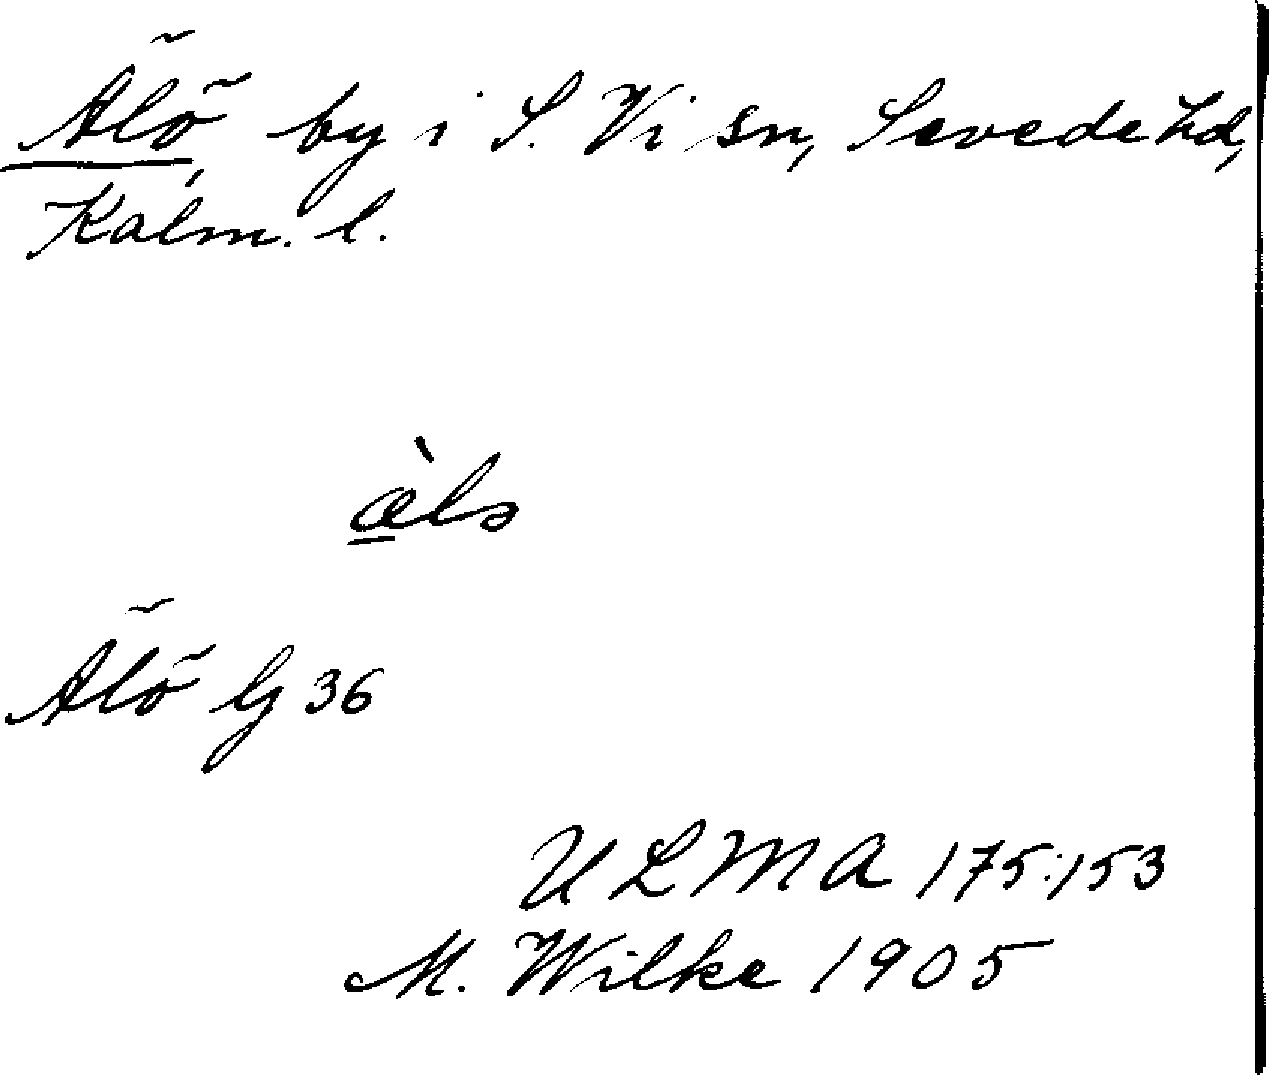 Älö, by i S. Vi sn, Sevede hd,
Kalm. l.
æ̀lə
Älö Gj 36
ULMA 175:153
M. Wilke 1905